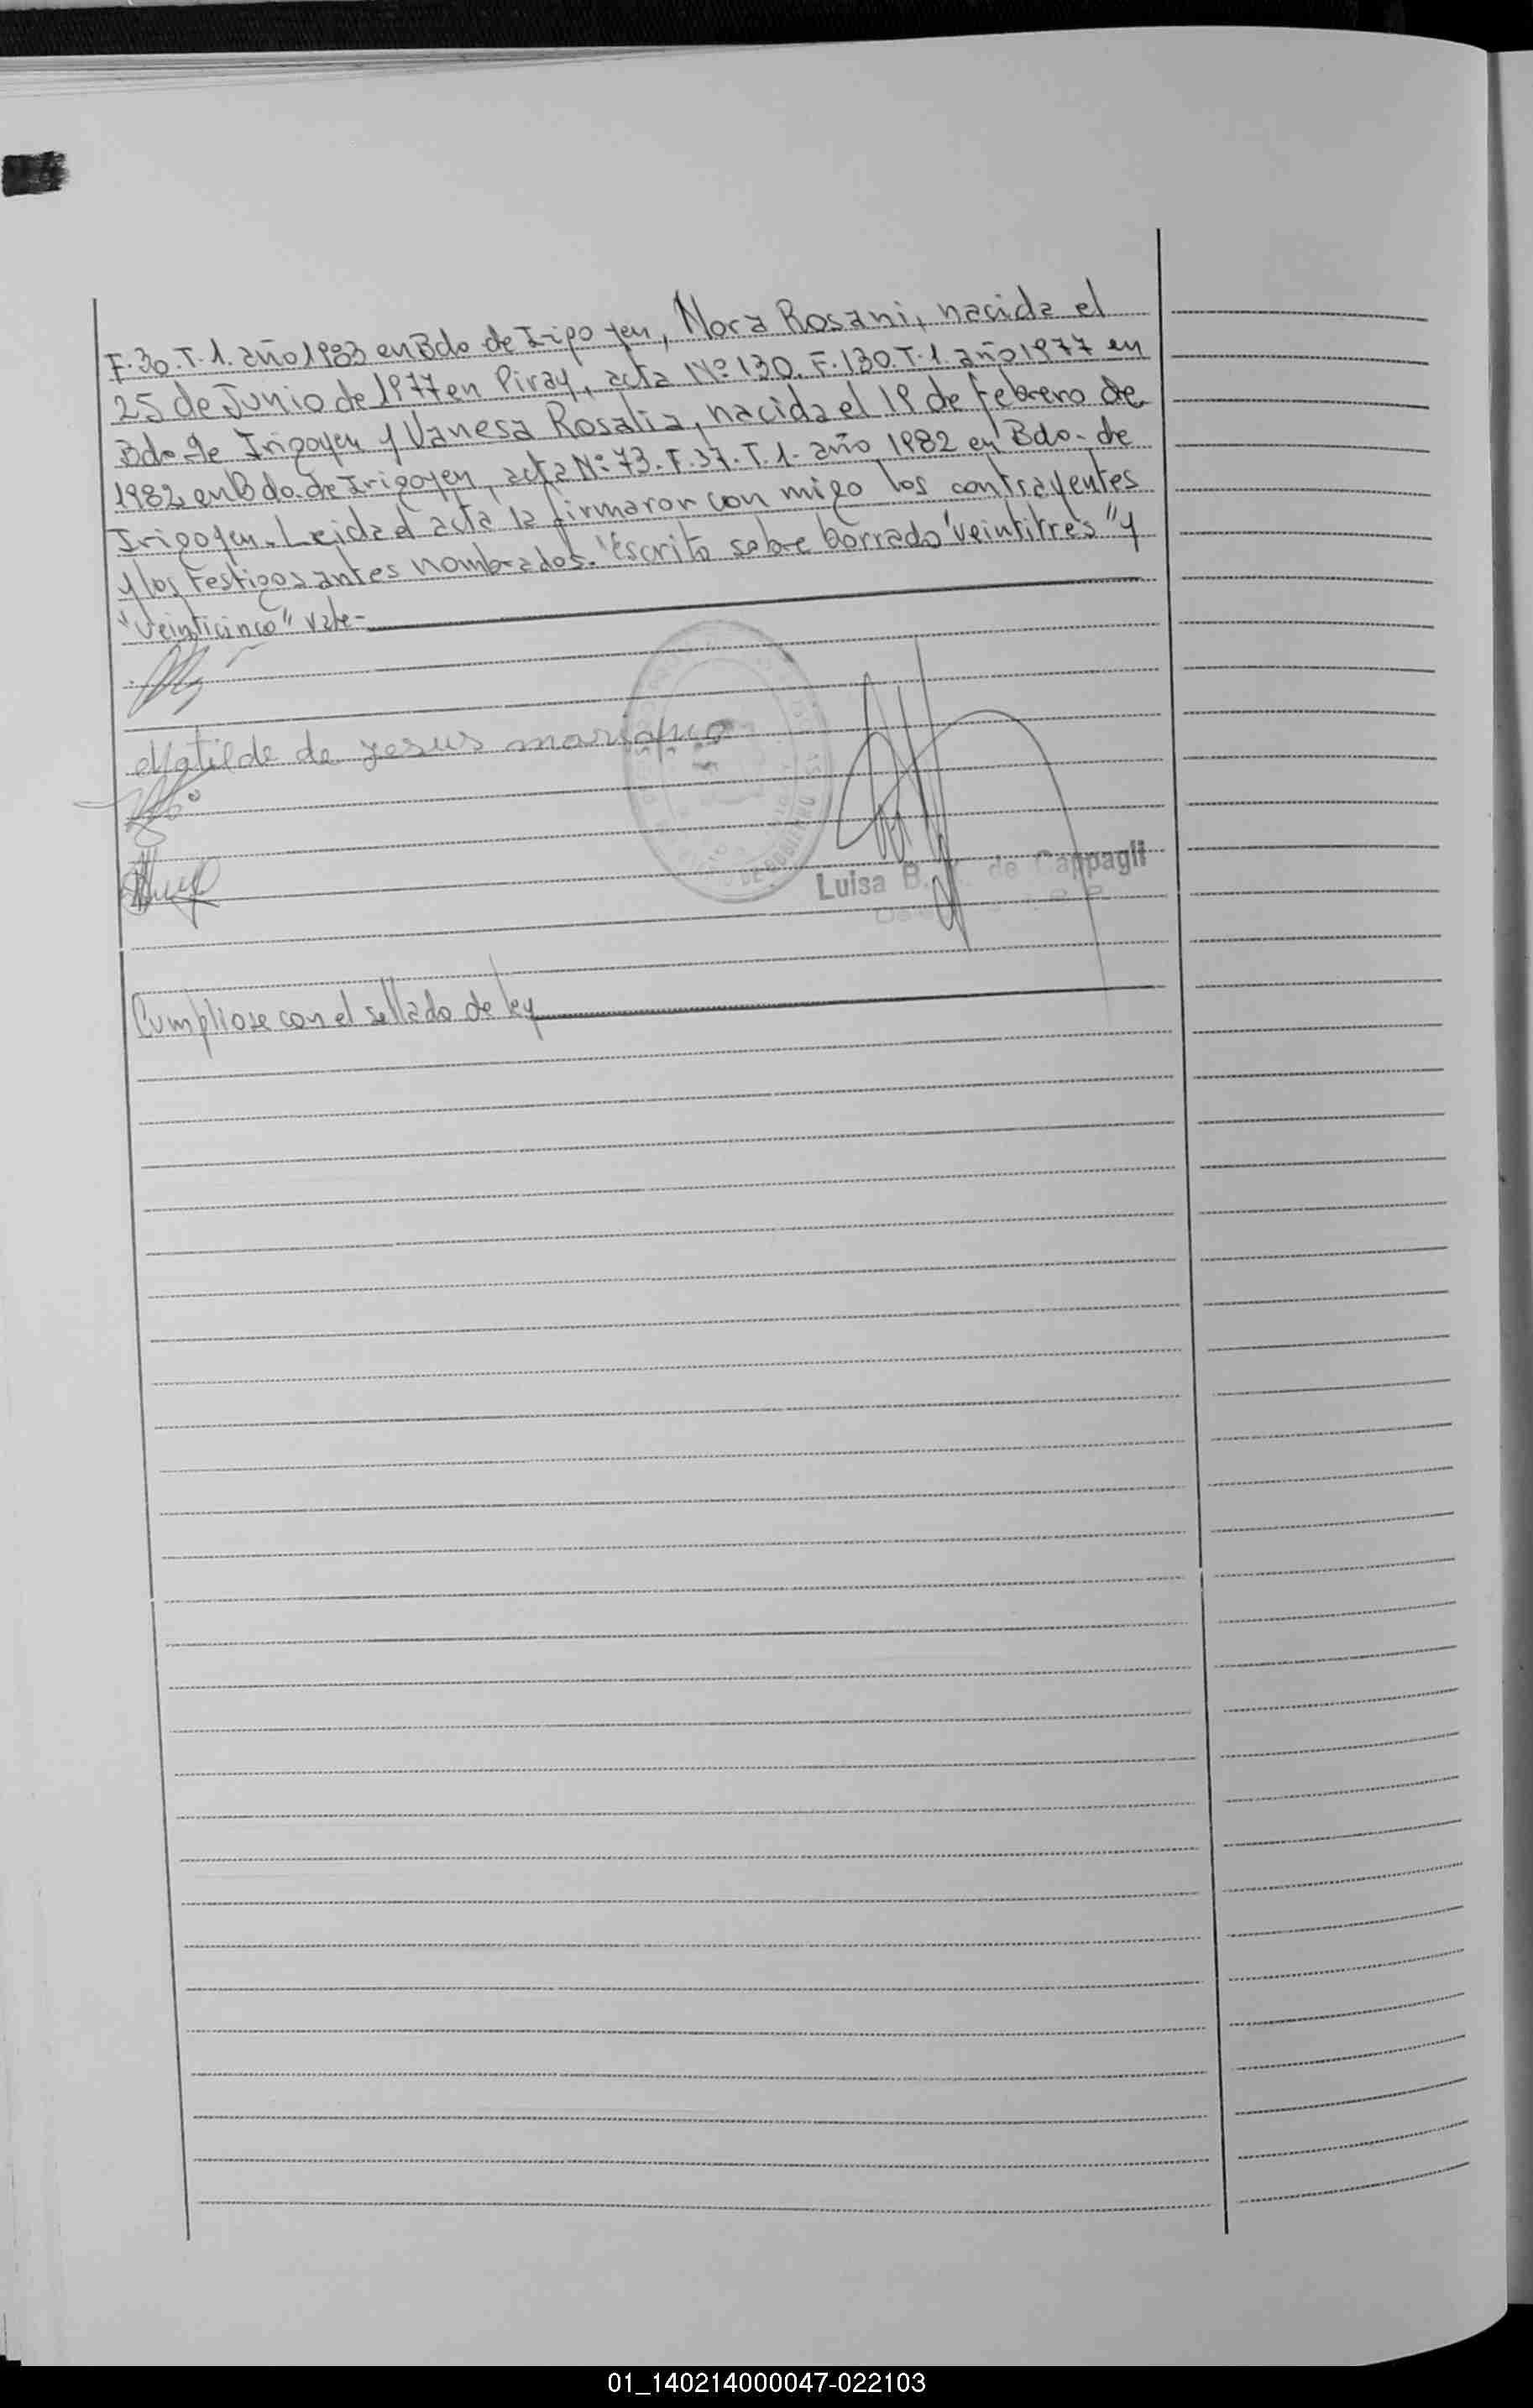 F.30.T.1. año 1983 en Bdo de Irigo yen, Nora Rosani, nacida el
25 de Junio de 1977 en Piray, acta Nº 130. F.130. T.1. año 1977 en
Bdo de Irigoyen y Vanesa Rosalia, nacida el 19 de febrero de
1982 en Bdo. de Irigoyen, acta Nº 73. F.37. T.1. año 1982 en Bdo. de
Irigoyen. Leida el acta la firmaron con migo los contrayentes
y los testigos antes nombrados. "Escrito sobre borrado "veintitres" y
"veinticinco" vale-
Matilde de Jesus mariano
DE GOBIERNO
Luisa B. de Cappagli
Cumpliose con el sellado de ley
01_140214000047-022103